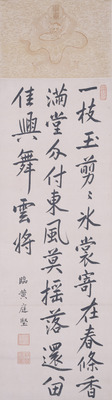 一枝玉剪〻冰裳寄在春條香
滿堂分付東風莫搖落還留
佳興舞雲將
臨黃庭堅